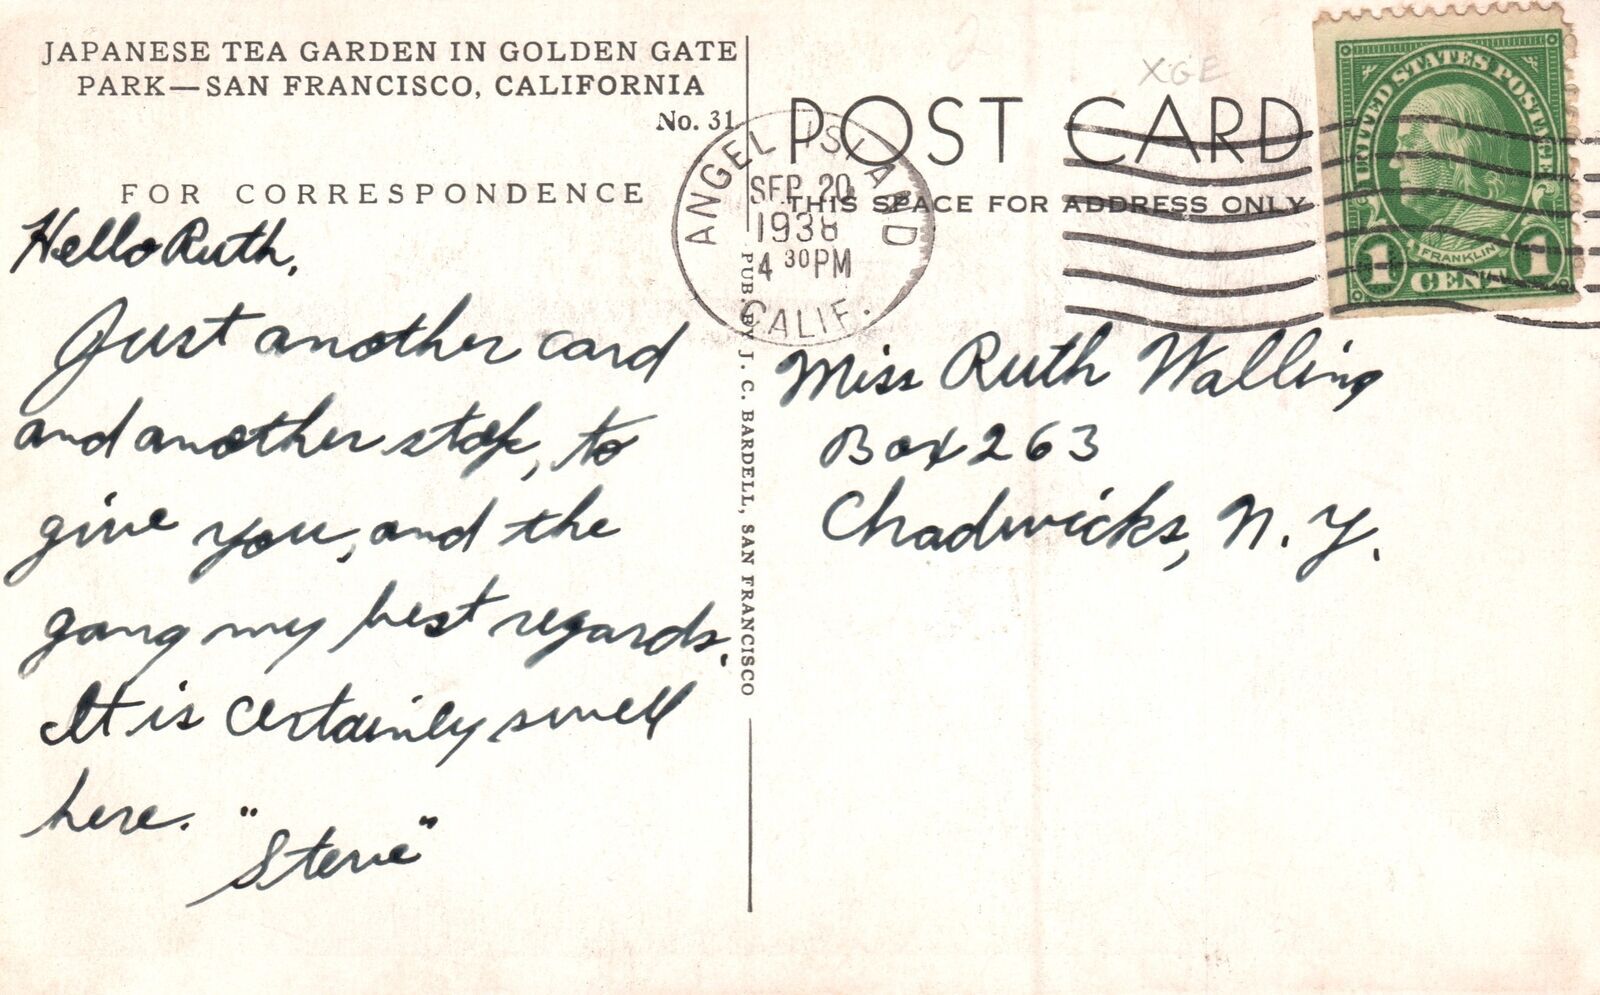 JAPANESE TEA GARDEN IN GOLDEN GATE
PARK—SAN FRANCISCO, CALIFORNIA
No. 31
FOR CORRESPONDENCE
Hello Ruth,
Just another card
and another stop, to
give you, and the
gang my best regards.
It is certainly swell
here.
"Steve"
PUB. BY J. C. BARDELL, SAN FRANCISCO
XGE
POST CARD
THIS SPACE FOR ADDRESS ONLY
ANGEL ISLAND
SEP 20
1938
4 30 PM
CALIF.
UNITED STATES POSTAGE
FRANKLIN
1 CENT 1
Miss Ruth Walling
Box 263
Chadwicks, N. Y.